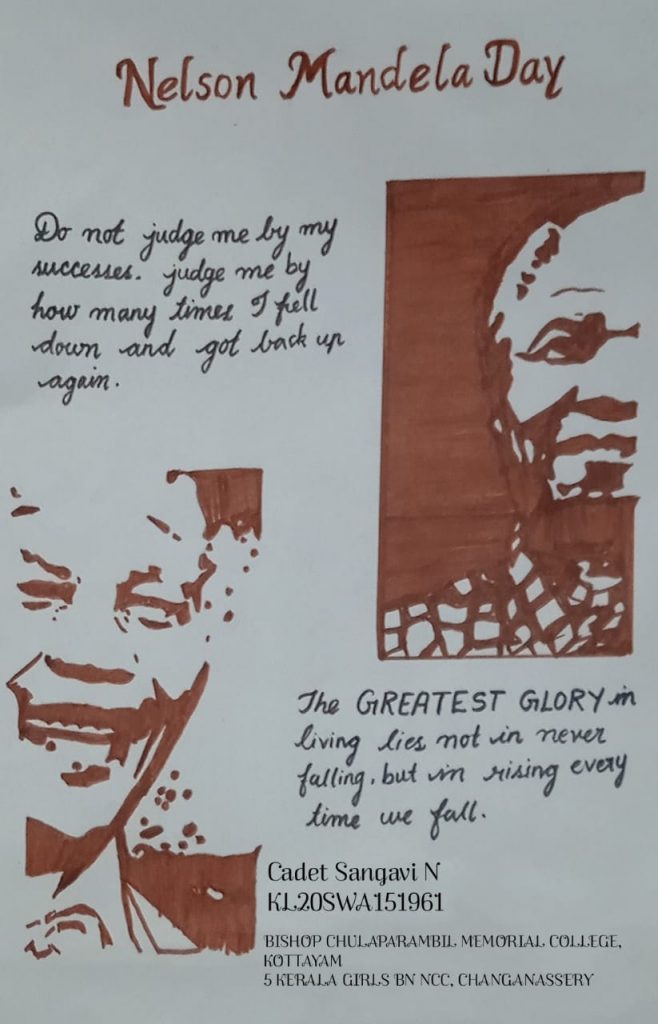 Nelson Mandela Day
Do not judge me by my
successes. judge me by
how many times I fell
down and got back up
again.
The GREATEST GLORY in
living lies not in never
falling, but in rising every
time we fall.
Cadet Sangavi N
KL20SWA151961
BISHOP CHULAPARAMBIL MEMORIAL COLLEGE,
KOTTAYAM
5 KERALA GIRLS BN NCC, CHANGANASSERY